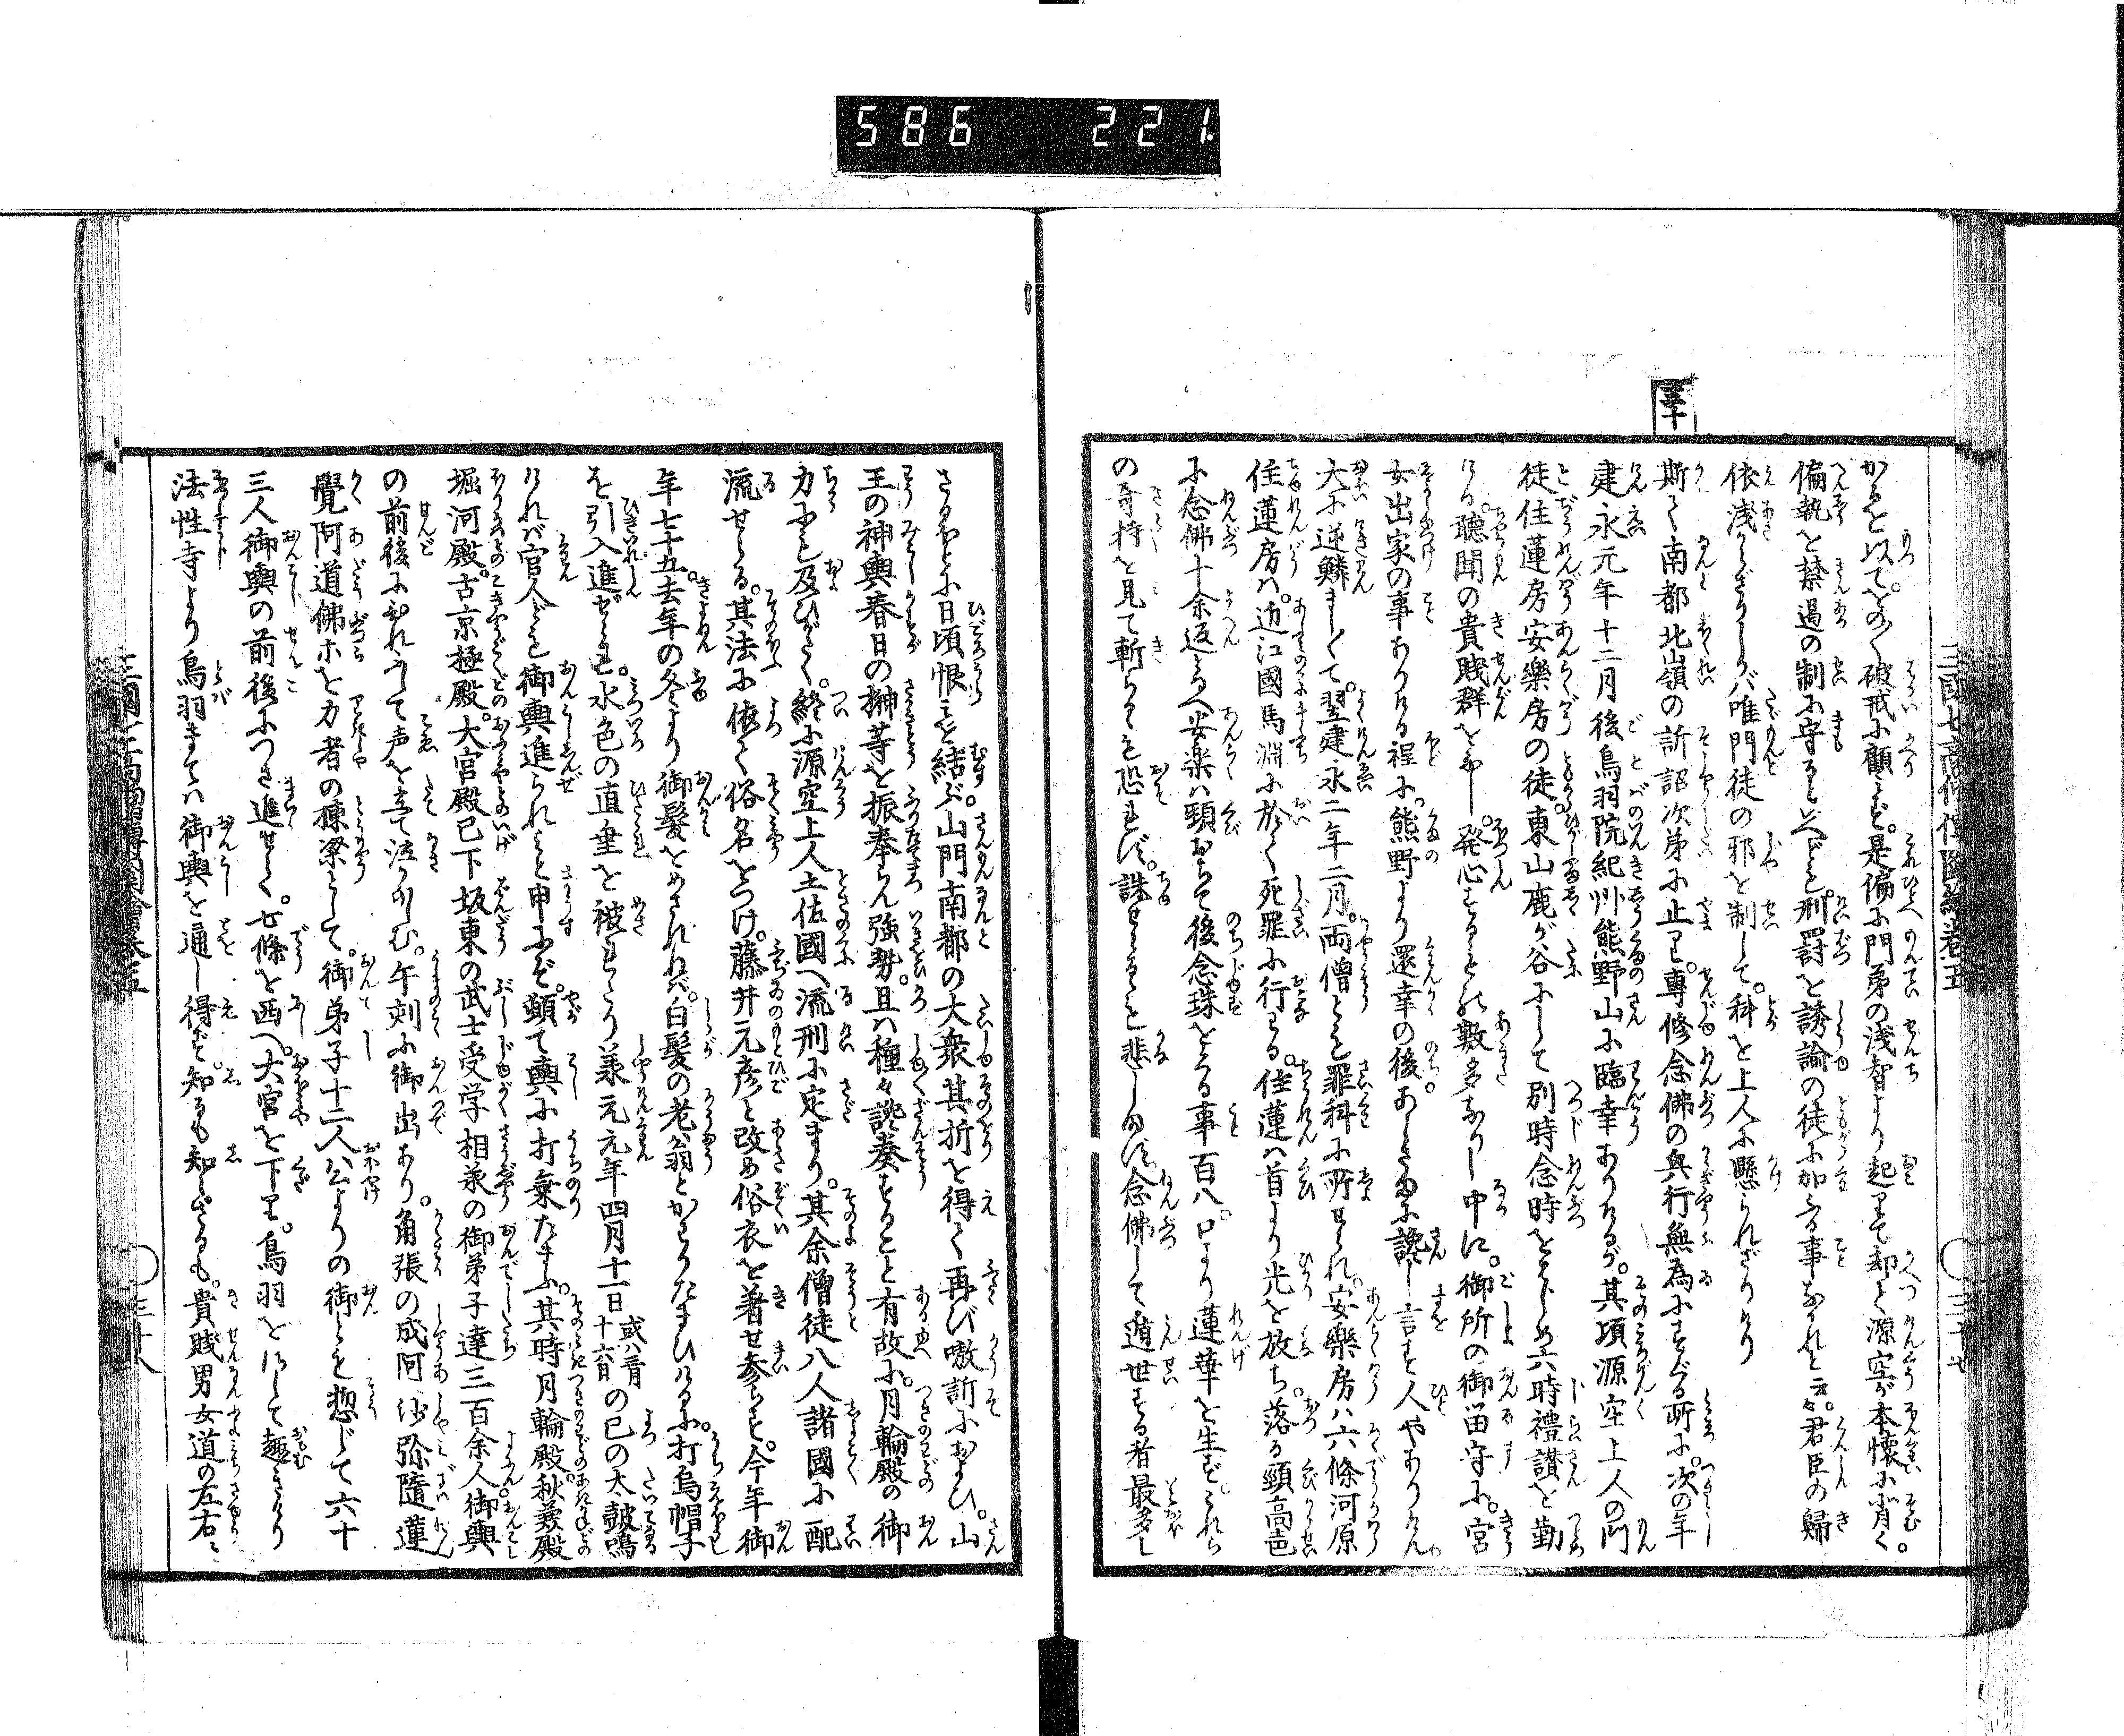 586 221
三國七高僧傳圖繪巻五
三十七
三十
かるを以てをの〳〵破戒を顧ミず是偏に門弟の浅智より起りて却て源空が本懐に背く。
偏執を禁遏の制に守るといへども刑罰を誘諭の徒に加ふる事なかれと云々。君臣の歸
依浅からざりしが唯門徒の邪を制して。科を上人に懸られざりけり
斯て南都北嶺の訴訟次第に止ミ。専修念佛の興行無為にすぐる所に。次の年
建永元年十二月後鳥羽院紀州熊野山に臨幸ありけるが。其頃源空上人の門
徒住蓮房安樂房の徒。東山鹿が谷にして別時念時をはじめ六時禮讃を勤
ける。聽聞の貴賤群をなし。発心するもの数多なりし中に。御所の御畄守に。宮
女出家の事ありける程に。熊野より還幸の後。あしさまに讒し言す人やありけん
大に逆鱗まし〳〵て。翌建永二年二月。両僧とも罪科に所せられ。安樂房ハ六條河原
住蓮房ハ。近江國馬淵に於て死罪に行る。住蓮ハ首より光を放ち。落る頸高色
に念佛十余返となへ安楽ハ頸おちて後念珠をくる事百八。口より蓮華を生ず。これら
の奇持を見て斬らるゝを恐れず。誅せらるゝを悲しまず念佛して遁世する者最多し
さるほどに日頃恨ミを結ぶ。山門南都の大衆其折を得て再び嗷訴におよひ。山
王の神輿春日の榊等を振奉らん強勢。且ハ種々讒奏すること有故に。月輪殿の御
力にも及びがたく。終に源空上人土佐國へ流刑に定まり。其余僧徒八人諸國に配
流せらる。其法に依て俗名をつけ。藤井元彦と改め俗衣を著せ参らす。今年御
年七十五。去年の冬より御髪をめされねバ。白髪の老翁とかはりたまひけるに。打烏帽子
を引入進せらる。水色の直垂を被まゐり羕元元年四月十一日或ハ十六日の巳の太皷鳴
けれバ官人ども御輿進られよと申にぞ。頓て輿に打乗たまふ。其時月輪殿。秋羕殿
堀河殿。古京極殿。大宮殿已下坂東の武士受学相羕の御弟子達三百余人御輿
の前後にひれふして声を立て泣かなしむ。午刻に御出あり。角張の成阿沙弥隨蓮
覺阿道佛ホを力者の棟梁として。御弟子十二人公よりの御とも惣じて六十
三人御輿の前後につき進せて。七條を西へ。大宮を下り。鳥羽をさして趣きけり
法性寺より鳥羽まてハ御輿を通し得ず。知るも知らざるも。貴賤男女道の左右ニ
三國七高僧傳圖繪巻五
三十八